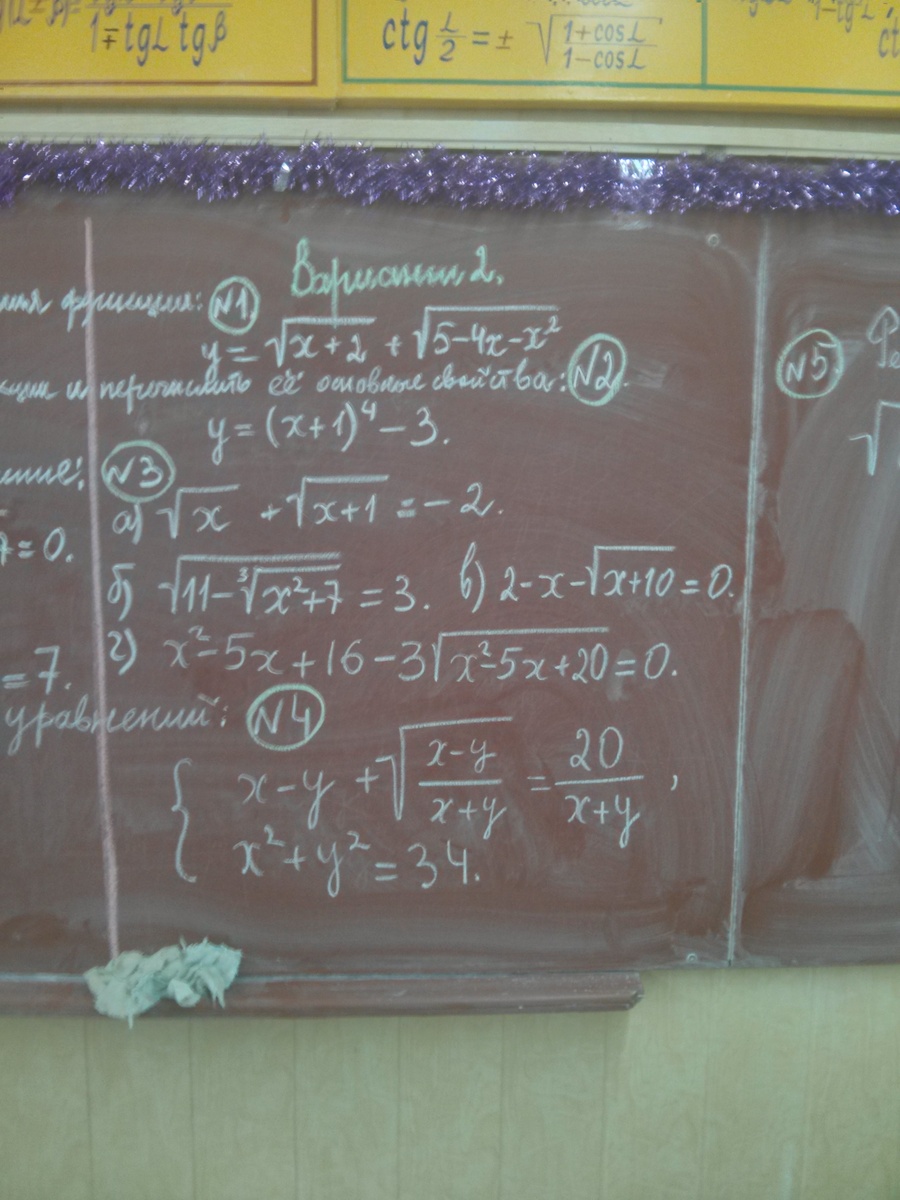 1∓tgα tgβ
ctg α/2 = ± √((1+cosα)/(1-cosα))
Вариант 2.
функции: №1
y = √(x+2) + √(5-4x-x²)
и перечислить её основные свойства: №2.
y = (x+1)⁴ - 3.
№3
а) √x + √(x+1) = -2.
= 0.
б) √(11-∛(x²+7)) = 3. в) 2-x-√(x+10) = 0.
г) x²-5x+16-3√(x²-5x+20) = 0.
= 7.
уравнений: №4
{ x-y + √((x-y)/(x+y)) = 20/(x+y) ,
x²+y² = 34.
№5